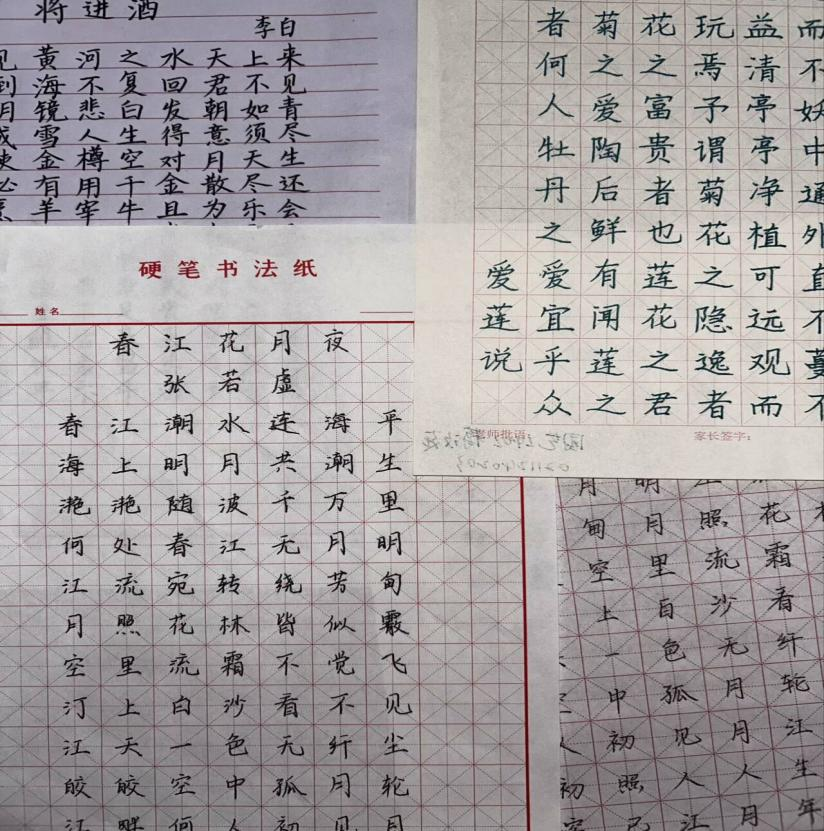 将进酒
李白
见黄河之水天上来
到海不复回君不见
明镜悲白发朝如青
成雪人生得意须尽
使金樽空对月天生
必有用千金散尽还
烹羊宰牛且为乐会
硬笔书法纸
姓名
春江花月夜
张若虚
春江潮水连海平
海上明月共潮生
滟滟随波千万里
何处春江无月明
江流宛转绕芳甸
月照花林皆似霰
空里流霜不觉飞
汀上白沙看不见
江天一色无纤尘
皎皎空中孤月轮
江畔何人初见月
爱莲说
而不妖中通外直不蔓不
益清亭亭净植可远观而
玩焉予谓菊花之隐逸者
花之富贵者也莲花之君
菊之爱陶后鲜有闻莲之
者何人牡丹之爱宜乎众
老师批语:
家长签字:
月明
甸月照花
空里流霜
上白沙看
一色无纤
中孤月轮
初见月江
初照人人生
江月年